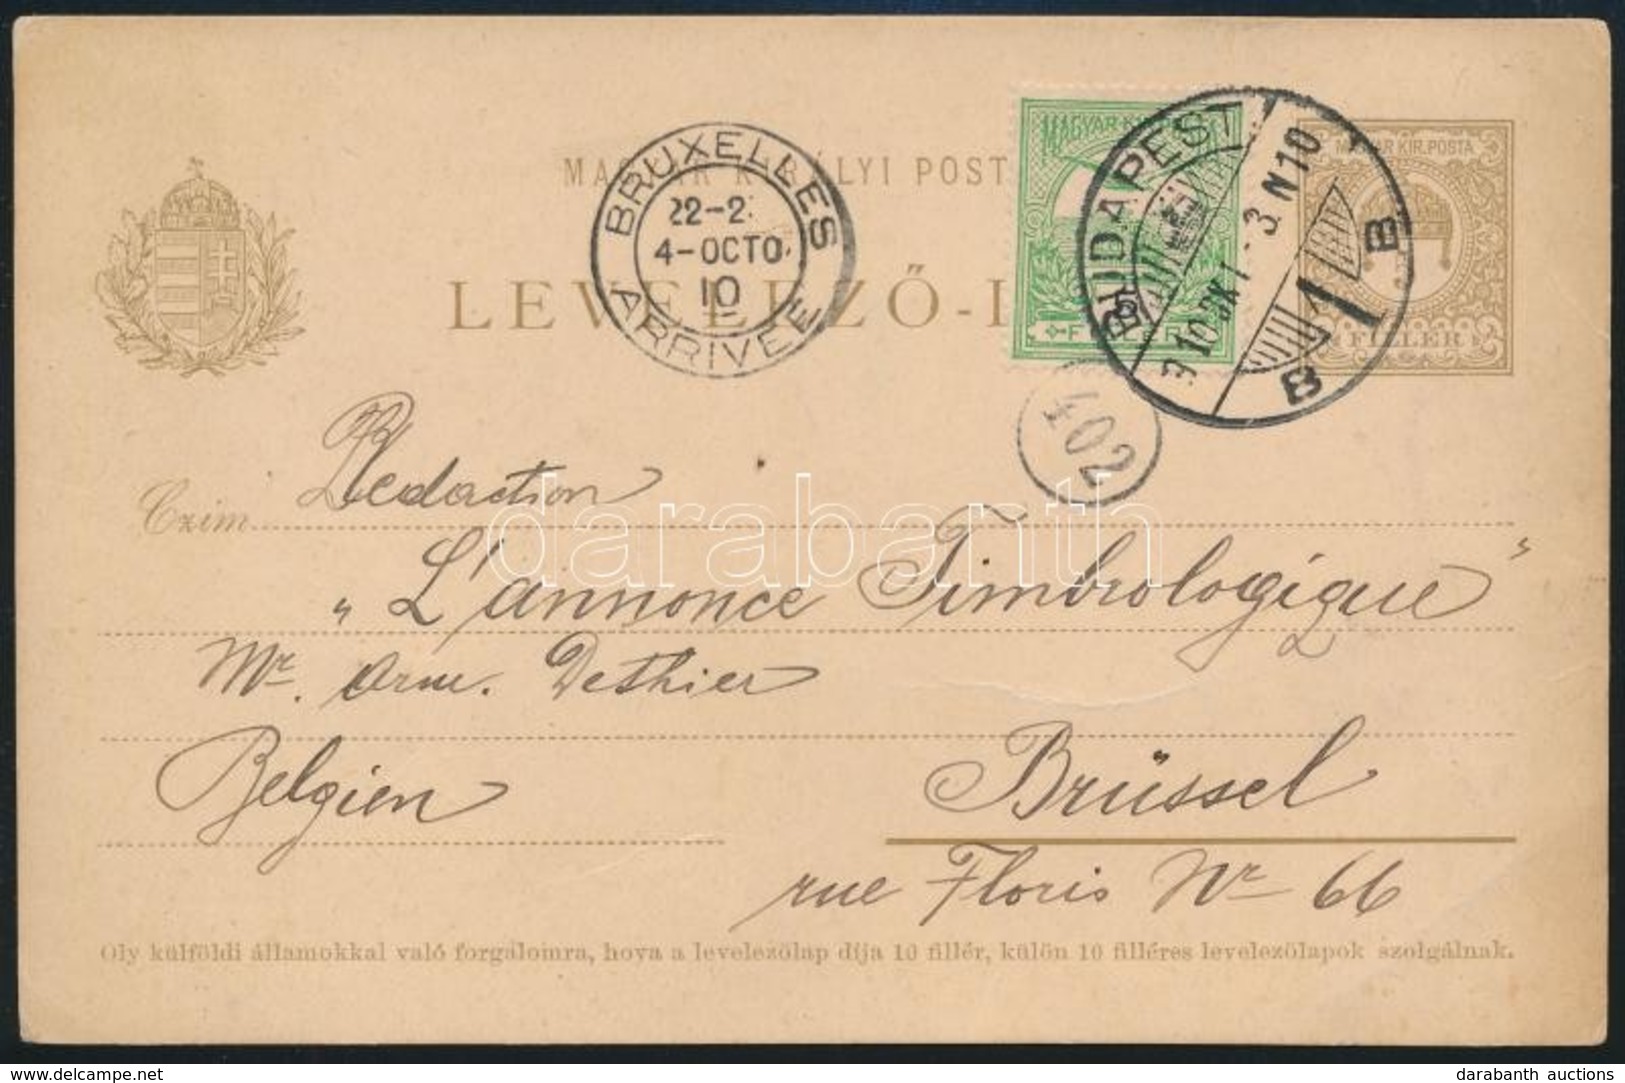 BRUXELLES
22-2
4-OCTO.
10
ARRIVEE
MAGYAR KIR. POSTA
LEVELEZŐ-
BUDAPEST
910 OKT -3. N10
1
B B
5
FILLÉR
402
Czim Redaction
„L'annonce Timbrologique"
Mr. Arm. Dethier
Belgien Brüssel
rue Floris Nr 66
Oly külföldi államokkal való forgalomra, hova a levelezőlap díja 10 fillér, külön 10 filléres levelezőlapok szolgálnak.
darabanth
www.delcampe.net
darabanth auctions